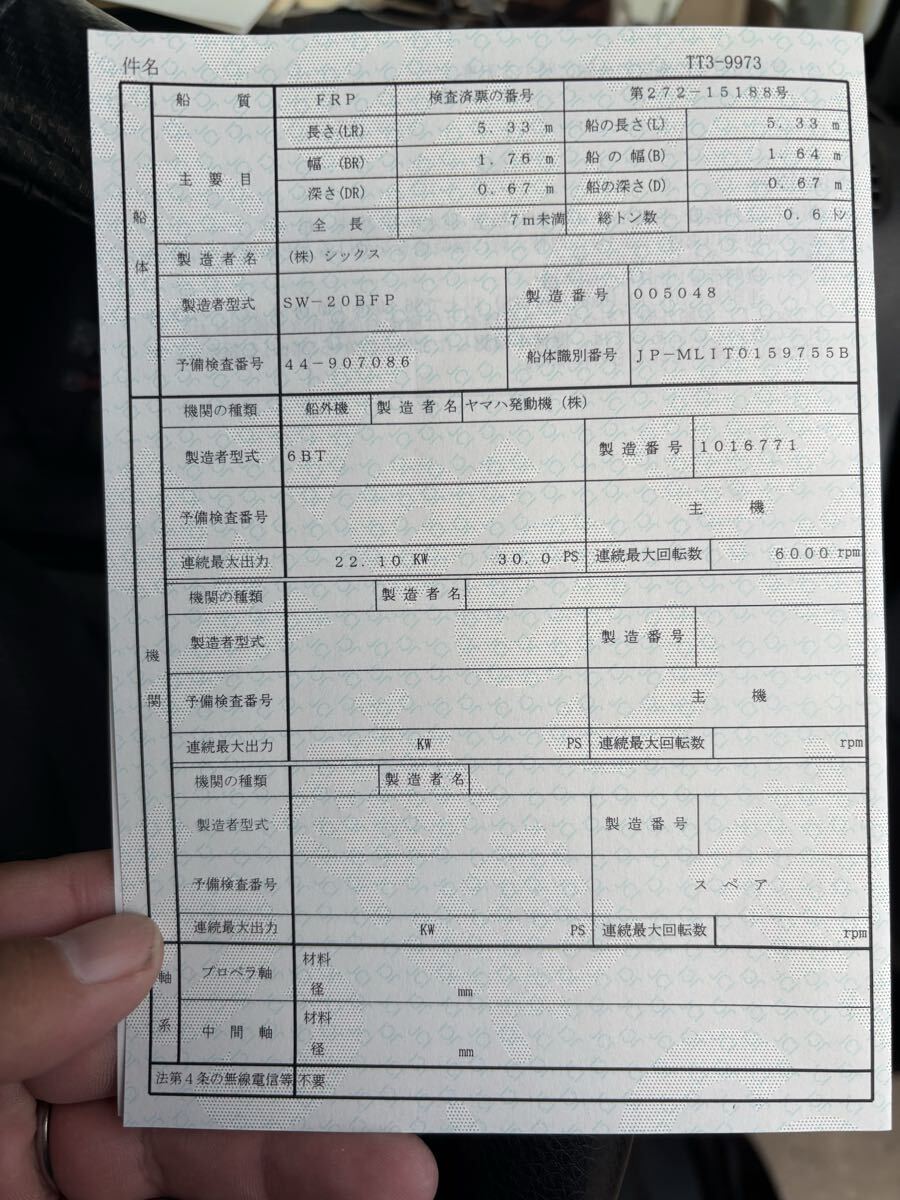 件名 TT3-9973
船体 船質 FRP 検査済票の番号 第272-15188号
主要目 長さ(LR) 5.33 m 船の長さ(L) 5.33 m
幅 (BR) 1.76 m 船の幅(B) 1.64 m
深さ(DR) 0.67 m 船の深さ(D) 0.67 m
全長 7m未満 総トン数 0.6 トン
製造者名 (株)シックス
製造者型式 SW-20BFP 製造番号 005048
予備検査番号 44-907086 船体識別番号 JP-MLIT0159755B
機関 機関の種類 船外機 製造者名 ヤマハ発動機(株)
製造者型式 6BT 製造番号 1016771
予備検査番号 主機
連続最大出力 22.10 KW 30.0 PS 連続最大回転数 6000 rpm
機関の種類 製造者名
製造者型式 製造番号
予備検査番号 主機
連続最大出力 KW PS 連続最大回転数 rpm
機関の種類 製造者名
製造者型式 製造番号
予備検査番号 スペア
連続最大出力 KW PS 連続最大回転数 rpm
軸系 プロペラ軸 材料
径 mm
中間軸 材料
径 mm
法第4条の無線電信等 不要